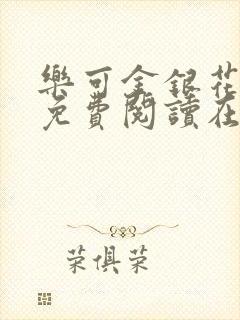 樂可金銀花
免費閱讀在
荣俱荣